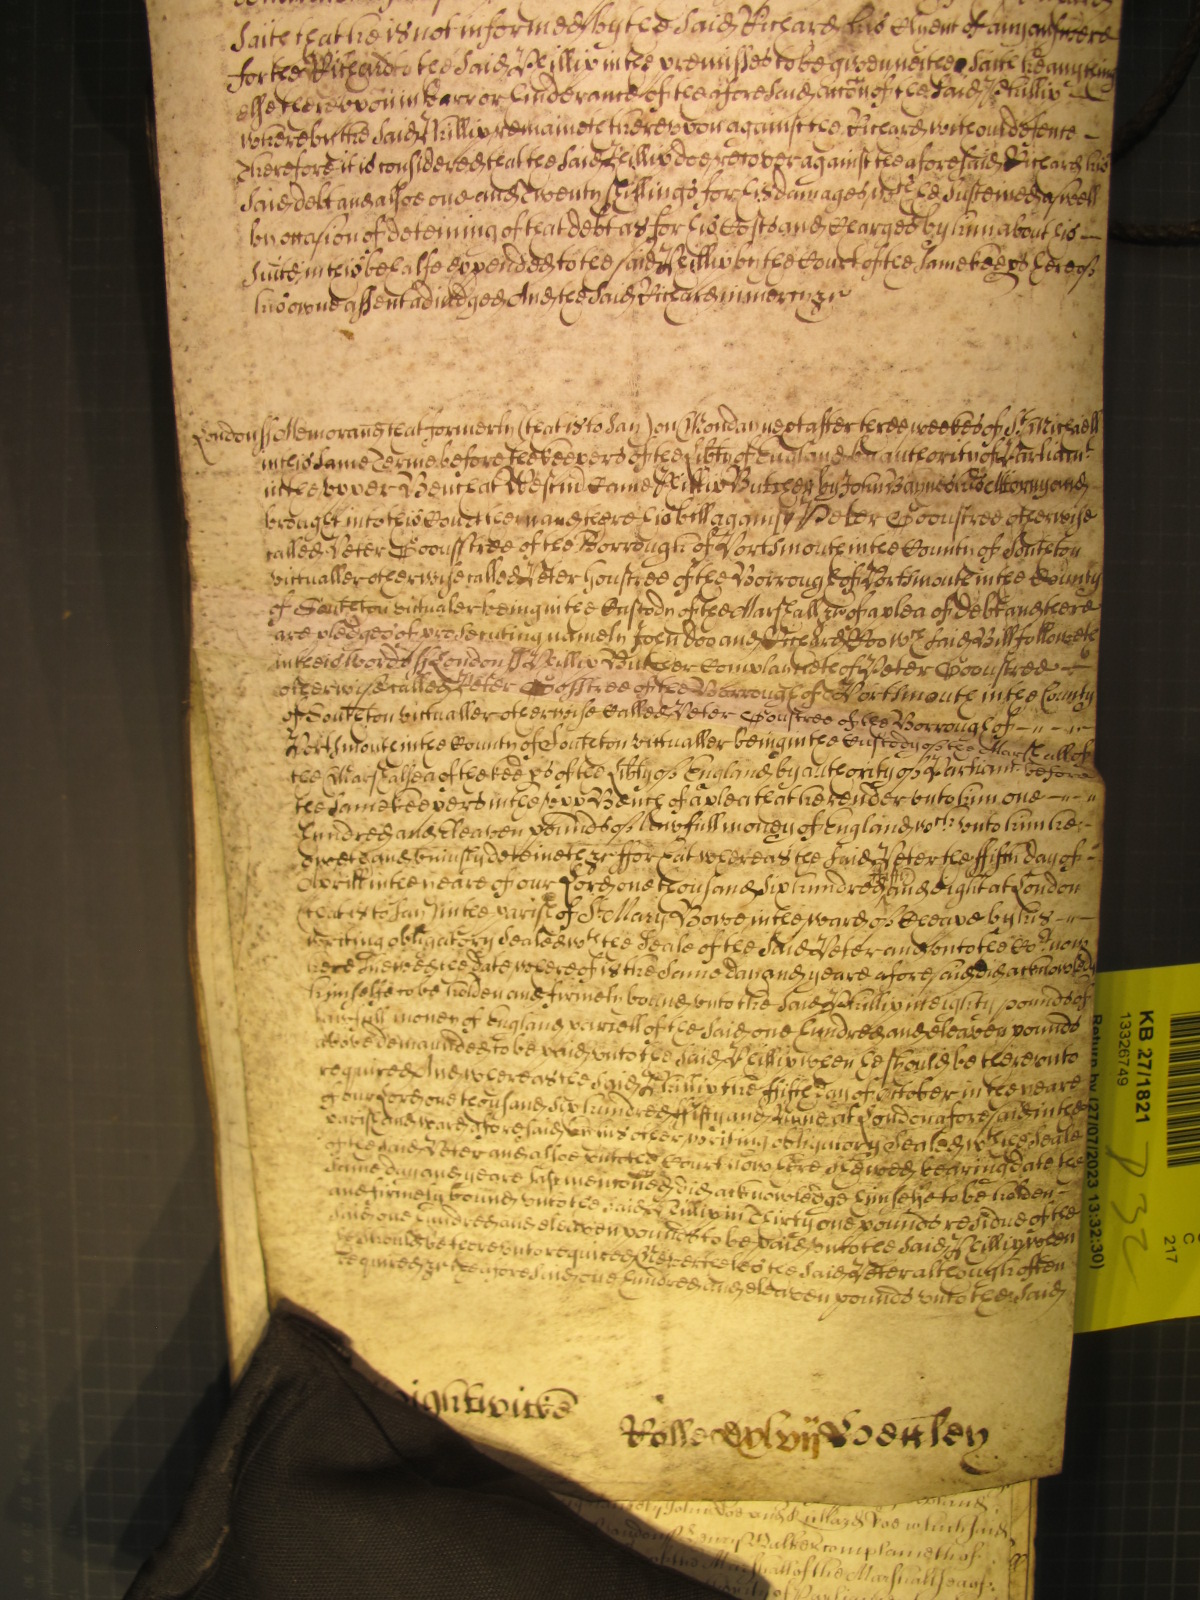 saith that he is not informed by the said Richard his Client of any answere
for the Richard to the said Phillip in the premisses to be given neither saith he any thing
else thereupon in barr or hinderance of the aforesaid accon of the said Phillip
whereby the said Phillip remaineth thereupon against the Richard without defence
Therefore it is considered that the said Phillip doe recover against the aforesaid Richard his
said debt and alsoe one and twenty shillings for his damages wch he susteined aswell
by occasion of deteining of that debt as for his Costs and Charges by him about his
suite in this behalfe expended to the said Phillip by the Court of the same keeps here of
his owne assent adiudged And the said Richard in mercy &c
London ss Memorand that formerly (that is to say) on Monday next after three weekes of St Michaell
in this same Terme before the keepers of the libty of England by authority of Parliamt
in the upper Bench at Westm Came Phillip Butcher by John Baynes his Attorny and
brought into this Court then and there his bill against Peter Goonstree otherwise
called Peter Goonstree of the Borrough of Portsmouth in the County of Southton
victualler otherwise called Peter Gonstree of the Borrough of Portsmouth in the County
of Southton victualer being in the Custody of the Marshall &c of a plea of debt and there
are pledges of prosecuting namely John Doo and Richard Roo wch said Bill followeth
in theis words ss London ss Phillip Butcher Complaineth of Peter Goonstree
otherwise called Peter Gosstree of the Borrough of Portsmouth in the County
of Southton victualler otherwise Called Peter Gonstree of the Borrough of
Portsmouth in the County of Southton victualler being in the Custody of the Marshall of
the Marshalsea of the keeps of the libty of England by authority of Parliamt before
the same keepers in the upp Bench of a plea that he render unto him one
hundred and Eleaven pounds of lawfull money of England wch unto him he
oweth and uniustly deteineth &c ffor that whereas the said Peter the ffifth day of
Aprill in the yeare of our Lord one thousand six hundred fifty and eight at London
(that is to say) in the parish of St Mary Bowe in the ward of Cheape by his
writing obligatory sealed wth the seale of the said Peter and unto the Cort now
here shewed the date whereof is the same day and yeare aforesaid did acknowledg
himselfe to be holden and firmely bound unto the said Phillip in eighty pounds of
lawfull money of England parcell of the said one hundred and eleaven pounds
above demaunded to be paid unto the said Phillip when he should be thereunto
required And whereas the said Peter the ffifth day of October in the yeare
of our Lord one thousand six hundred ffifty and Nyne at London aforesaid in the
parish and ward aforesaid by his other writing obligatory sealed wth the seale
of the said Peter and alsoe unto the Court now here shewed bearing date the
same day and yeare last mentoned did acknowledge himselfe to be holden
and firmely bound unto the said Phillip in Thirty one pounds residue of the
said one hundred and eleaven pounds to be paid unto the said Phillip when
he should be thereunto required Neverthelesse the said Peter although often
required &c the aforesaid one hundred and eleaven pounds unto the said
ightwicke
Rolle
John Doe and Richard Roe which said
London ss Walker complaineth of
of the Marshall of the Marshallsea of
KB 27/1821
13326749
Return by (27/07/2023 13:32:30)
C
217